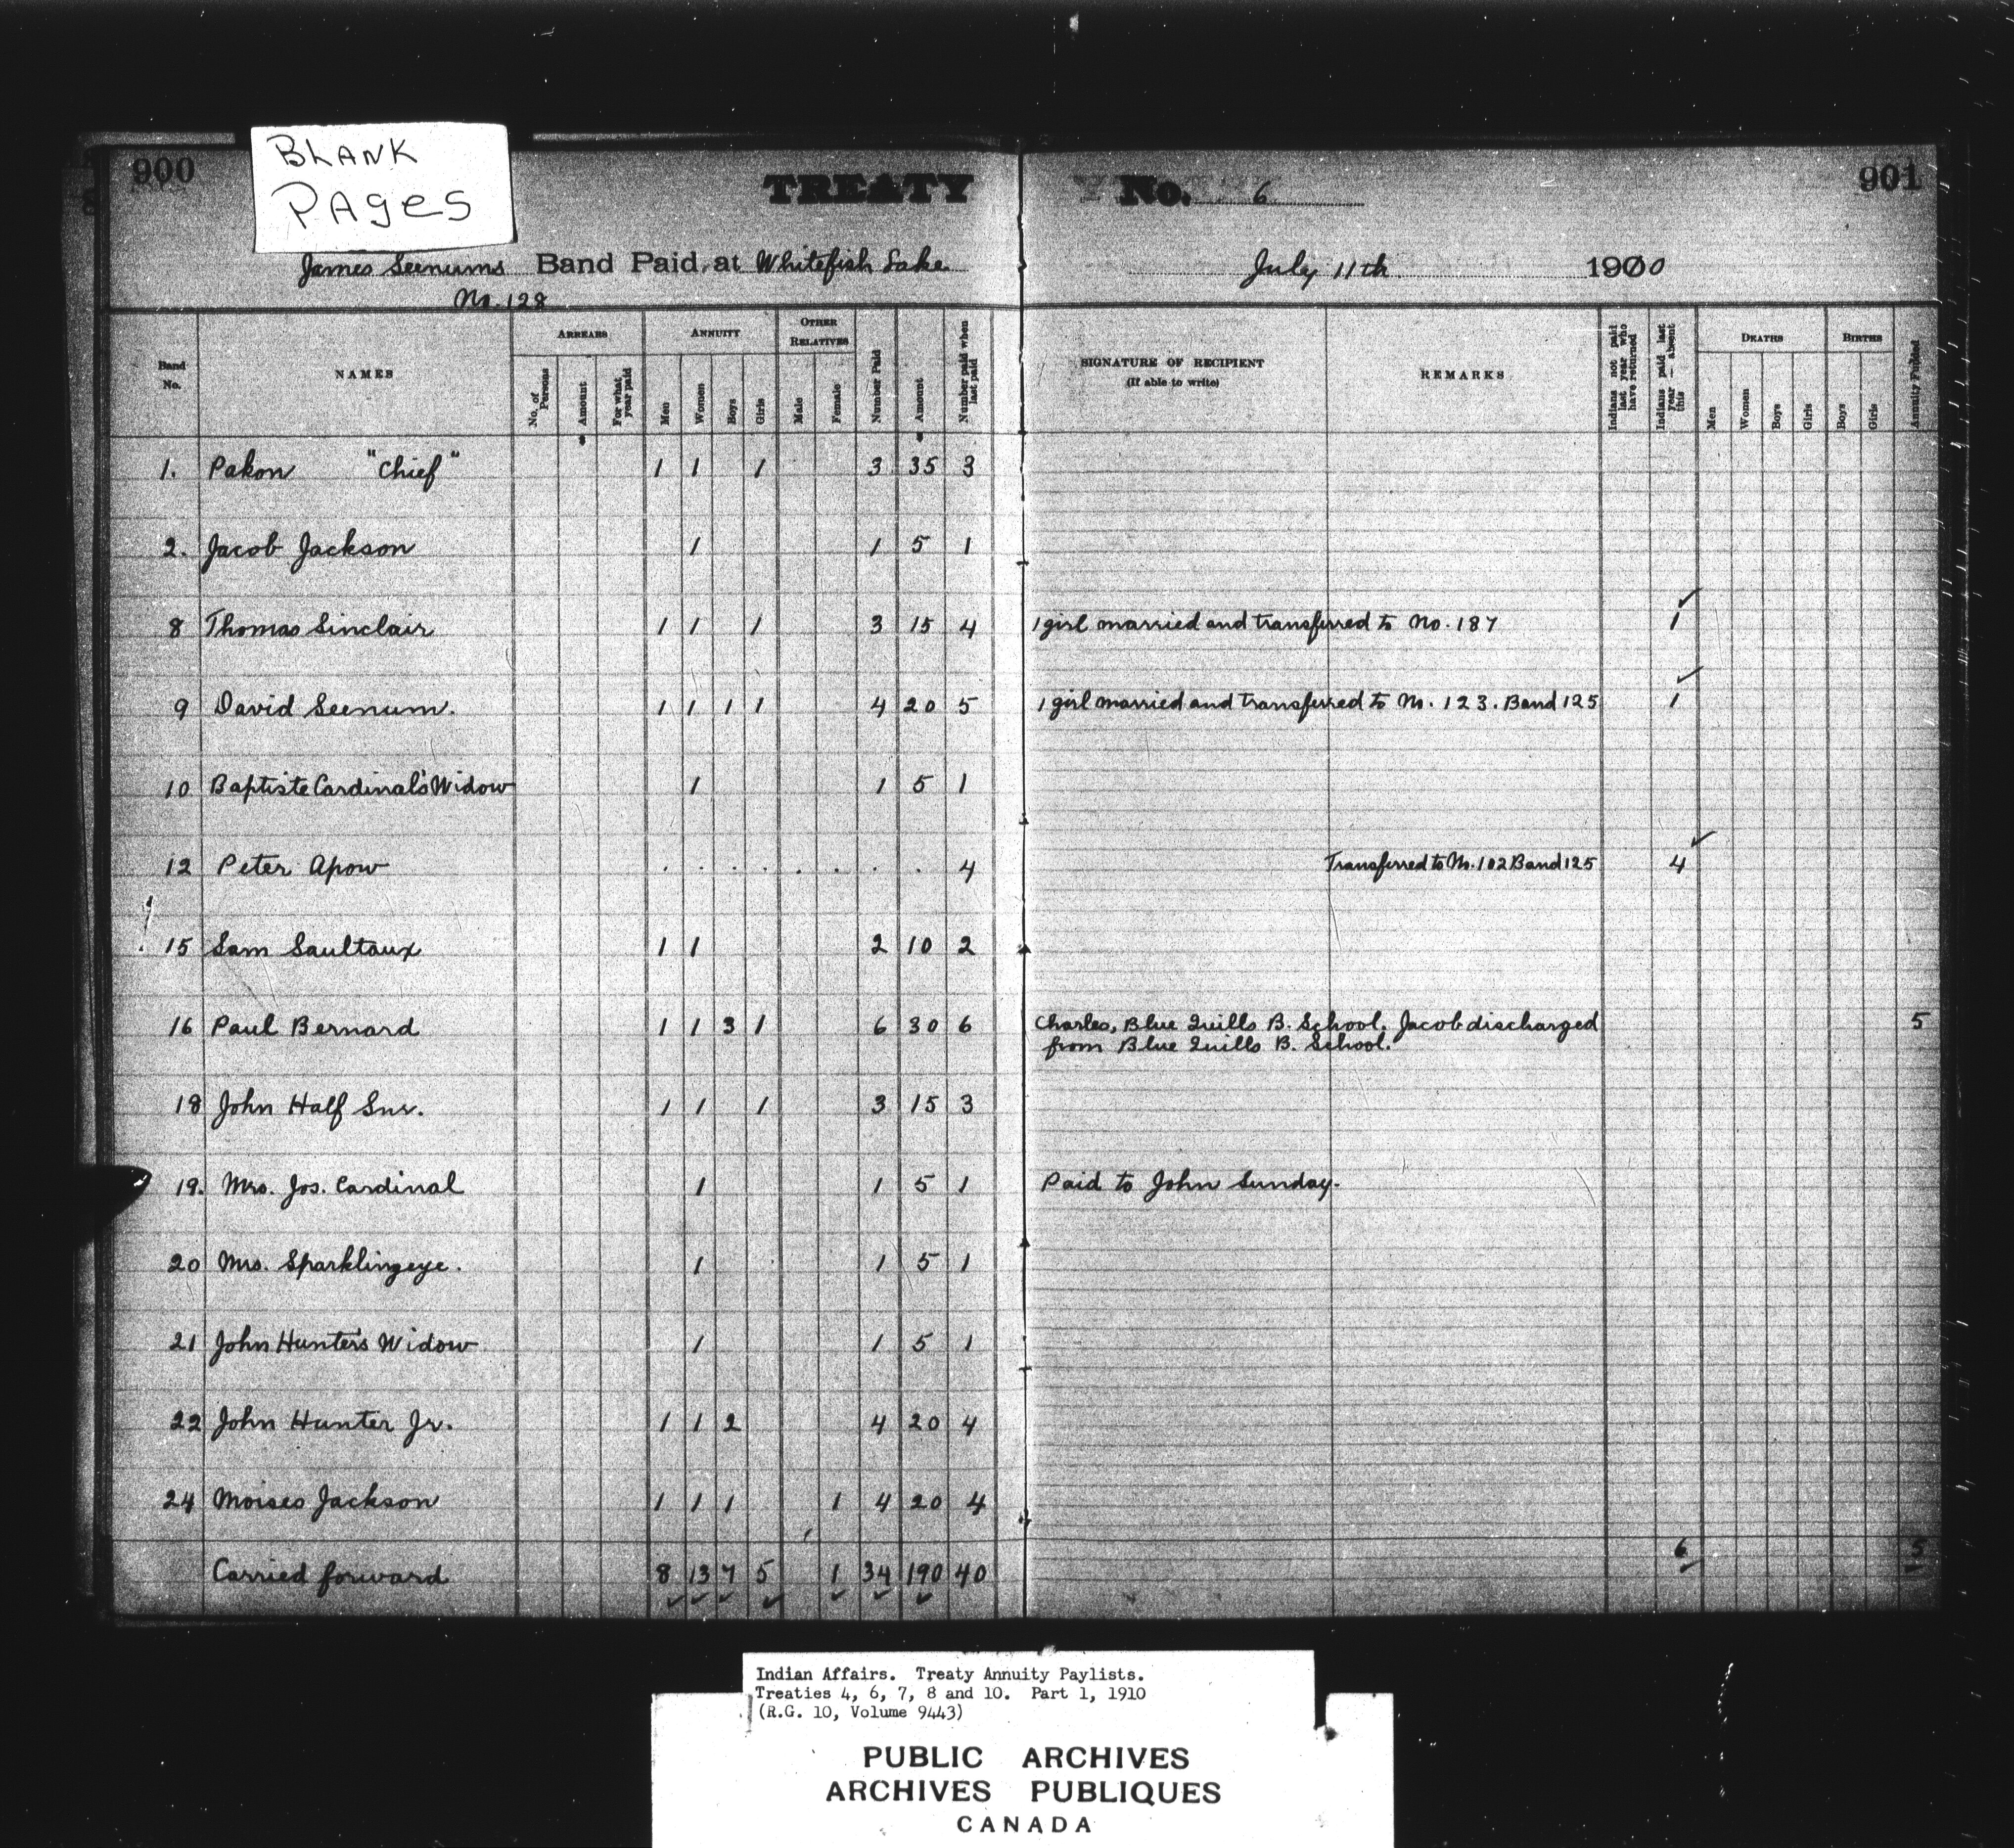 900
BLANK
PAGES
TREATY No. 6
901
James Seenums Band Paid at Whitefish Lake July 11th 1900
No. 128
Band No. NAMES ARREARS No. of Persons Amount For what year paid ANNUITY Men Women Boys Girls OTHER RELATIVES Male Female Number Paid Amount Number paid when last paid SIGNATURE OF RECIPIENT (If able to write) REMARKS Indians not paid last year who have returned Indians paid last year — absent this DEATHS Men Women Boys Girls BIRTHS Boys Girls Annuity Funded
1. Pakon "Chief" 1 1 1 3 35 3
2. Jacob Jackson 1 1 5 1
8 Thomas Sinclair 1 1 1 3 15 4 1 girl married and transferred to No. 187 1
9 David Seenum. 1 1 1 1 4 20 5 1 girl married and transferred to No. 123. Band 125 1
10 Baptiste Cardinal's Widow 1 1 5 1
12 Peter Apow . . . . . . . . 4 Transferred to No. 102 Band 125 4
15 Sam Saultaux 1 1 2 10 2
16 Paul Bernard 1 1 3 1 6 30 6 Charles, Blue Quills B. School. Jacob discharged 5
from Blue Quills B. School.
18 John Half Snr. 1 1 1 3 15 3
19. Mrs. Jos. Cardinal 1 1 5 1 Paid to John Sunday.
20 Mrs. Sparklingeye. 1 1 5 1
21 John Hunter's Widow 1 1 5 1
22 John Hunter Jr. 1 1 2 4 20 4
24 Moises Jackson 1 1 1 1 4 20 4
Carried forward 8 13 7 5 1 34 190 40 6 5
Indian Affairs. Treaty Annuity Paylists.
Treaties 4, 6, 7, 8 and 10. Part 1, 1910
(R.G. 10, Volume 9443)
PUBLIC ARCHIVES
ARCHIVES PUBLIQUES
CANADA